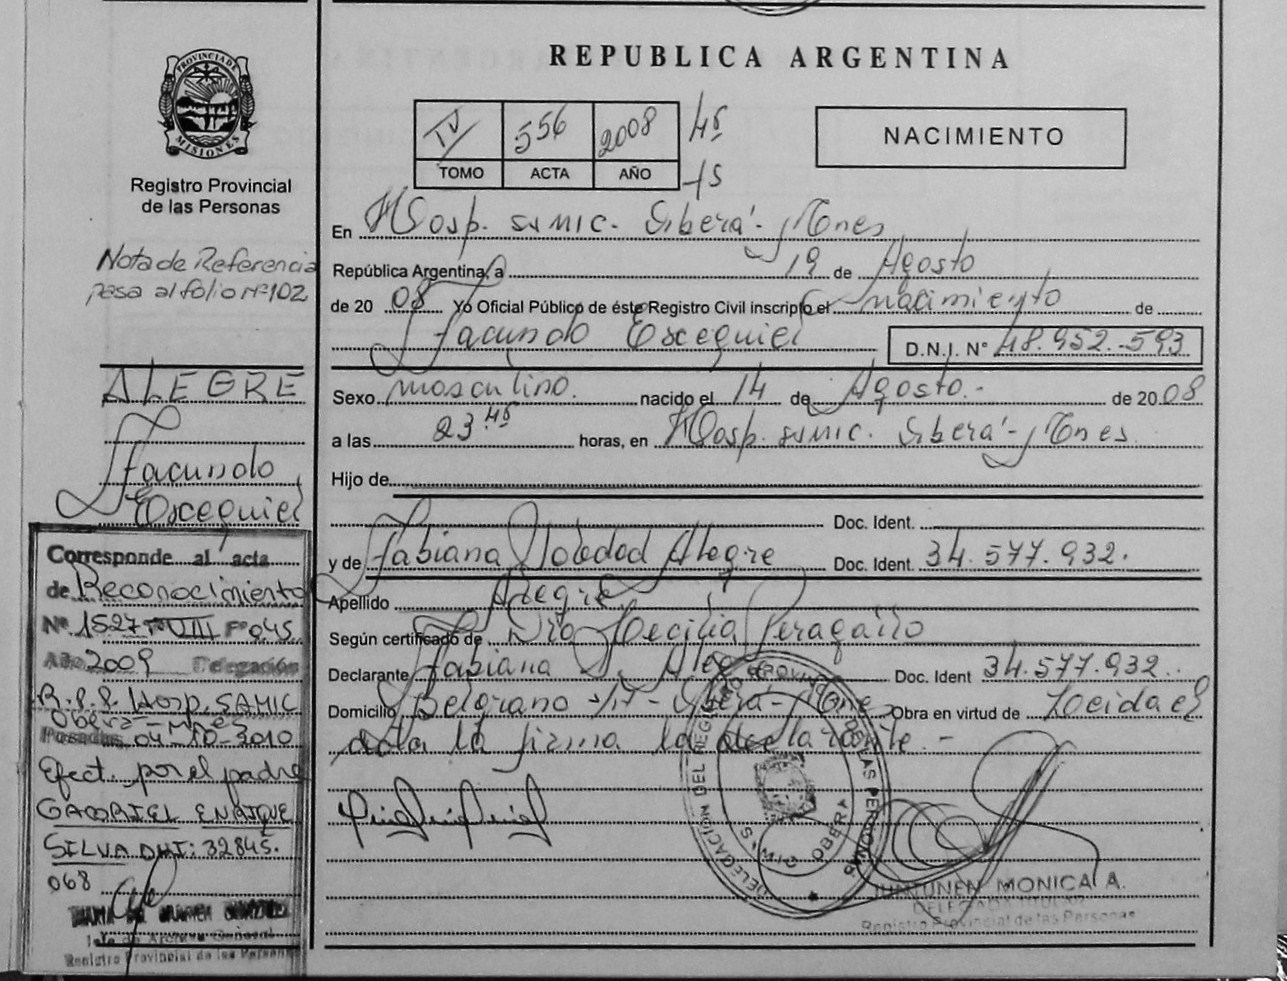 PROVINCIA DE
MISIONES
Registro Provincial
de las Personas
Nota de Referencia
pasa al folio Nº 102
ALEGRE
Facundo
Excequiel
Corresponde al acta
de Reconocimiento
Nº 1527 Tº VIII Fº 045
Año 2009 Delegación
R.P.P. Hosp. SAMIC
Oberá - Mnes
Posadas 04-10-2010
Efect. por el padre
GABRIEL ENRIQUE
SILVA DNI: 32845.
068
Jefe de Archivo General
Registro Provincial de las Personas
REPUBLICA ARGENTINA
IV 556 2008 45
TOMO ACTA AÑO 15
NACIMIENTO
En Hosp. SAMIC. Oberá - Mnes
República Argentina, a 19 de Agosto
de 20 08 Yo Oficial Público de éste Registro Civil inscripto el nacimiento de
Facundo Excequiel D.N.I. N° 48.952.593
Sexo masculino. nacido el 14 de Agosto.- de 20 08
a las 23 45 horas, en Hosp. SAMIC. Oberá - Mnes
Hijo de
Doc. Ident.
y de Fabiana Soledad Alegre Doc. Ident. 34.577.932.
Apellido Alegre
Según certificado de Dra Cecilia Peragallo
Declarante Fabiana S. Alegre Doc. Ident 34.577.932.
Domicilio Belgrano - Oberá - Mnes Obra en virtud de Leida el
acta la firma la declarante -
DELEGACIÓN DEL REGISTRO PROVINCIAL DE LAS PERSONAS
OBERA
JUNTUNEN MONICA A.
DELEGADA TITULAR
Registro Provincial de las Personas